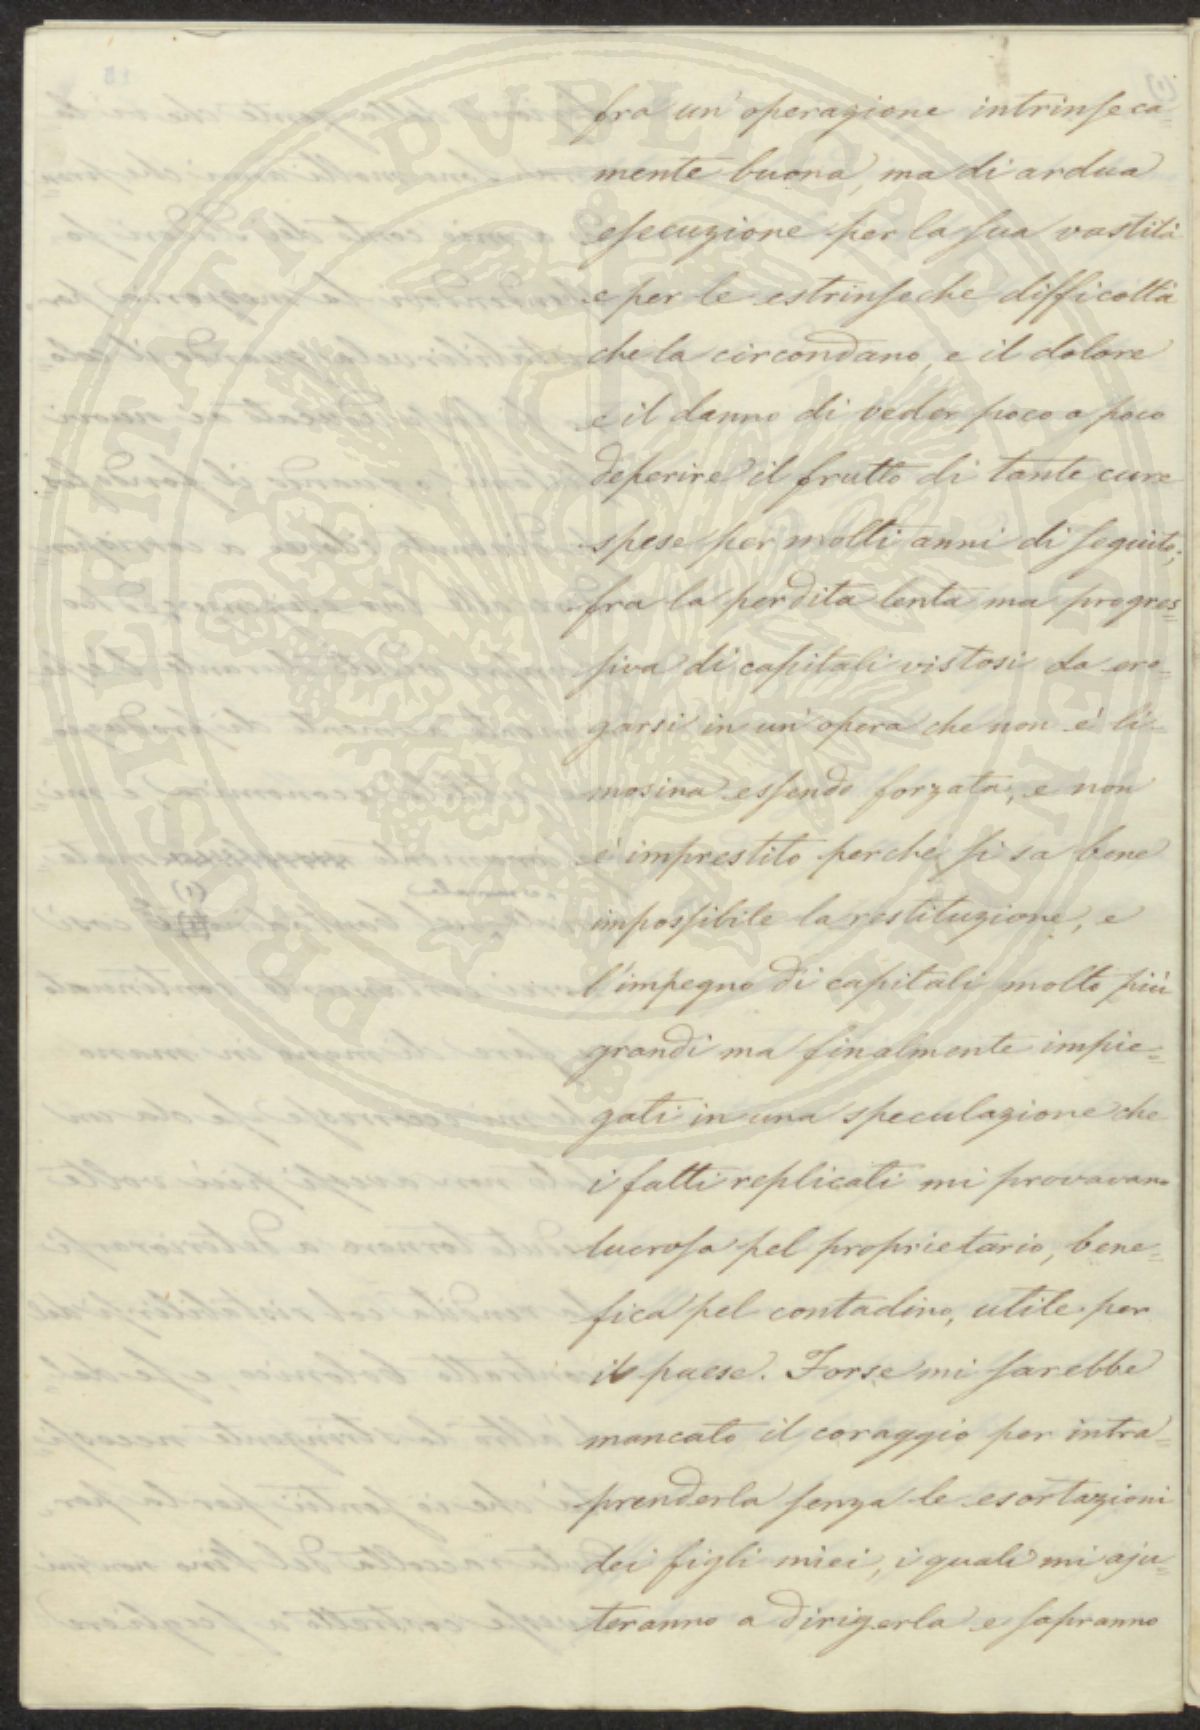 fra un' operazione intrinseca=
mente buona, ma di ardua
esecuzione per la sua vastità
e per le estrinseche difficoltà
che la circondano, e il dolore
e il danno di veder poco a poco
deperire il frutto di tante cure
spese per molti anni di seguito;
fra la perdita lenta ma progres=
siva di capitali vistosi da ero=
garsi in un' opera che non è li=
mosina essendo forzata, e non
è imprestito perchè si sa bene
impossibile la restituzione, e
l'impegno di capitali molto più
grandi ma finalmente impie=
gati in una speculazione che
i fatti replicati mi provavano
lucrosa pel proprietario, bene=
fica pel contadino, utile per
il paese. Forse mi sarebbe
mancato il coraggio per intra=
prenderla senza le esortazioni
dei figli miei, i quali mi aju=
teranno a dirigerla e sapranno